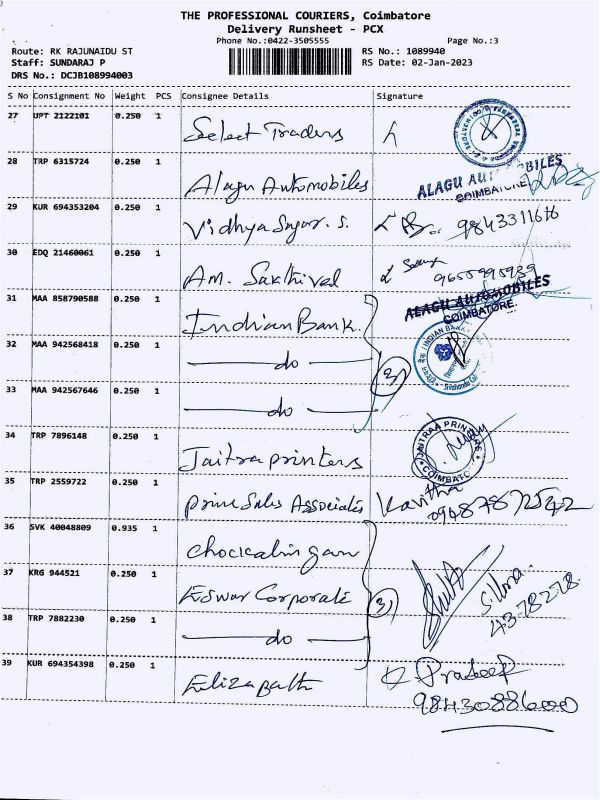 THE PROFESSIONAL COURIERS, Coimbatore
Delivery Runsheet - PCX
Phone No.:0422-3505555 Page No.:3
Route: RK RAJUNAIDU ST RS No.: 1089940
Staff: SUNDARAJ P RS Date: 02-Jan-2023
DRS No.: DCJB108994003
S No Consignment No Weight PCS Consignee Details Signature
27 UPT 2122101 0.250 1 Select Traders
28 TRP 6315724 0.250 1 Alagu Automobiles ALAGU AUTOMOBILES
COIMBATORE
29 KUR 694353204 0.250 1 Vidhya Sagar. S. 9843311616
30 EDQ 21460061 0.250 1 Am. Sakthivel 9655995939
31 MAA 858790588 0.250 1 Indian Bank. ALAGU AUTOMOBILES
COIMBATORE.
32 MAA 942568418 0.250 1 do 3) INDIAN BANK
33 MAA 942567646 0.250 1 do
34 TRP 7896148 0.250 1 Jaitra printers JAITRAA PRINTERS
COIMBATORE
35 TRP 2559722 0.250 1 prime Sales Associates Kavitha
09487872542
36 SVK 40048809 0.935 1 Chockalingam
37 KRG 944521 0.250 1 Eswar Corporate 3)
4378278
38 TRP 7882230 0.250 1 do
39 KUR 694354398 0.250 1 Elizabath Pradeep